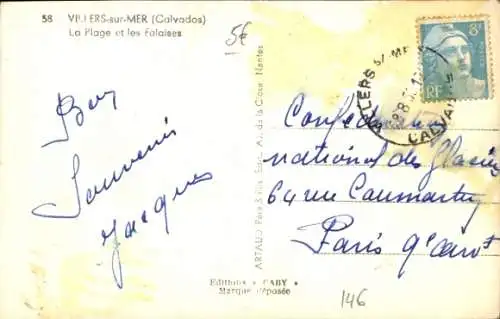 58 VILLERS-sur-MER (Calvados)
La Plage et les Falaises
5€
Bon
Souvenir
Jacques
ARTAUD Père & Fils, Édit., Av. de la Close, Nantes
Editions "GABY"
Marque déposée
8F
RF
VILLERS S/ MER
CALVADOS
Confédération
national des Glaciers
64 rue Caumartin
Paris 9e arrt
146